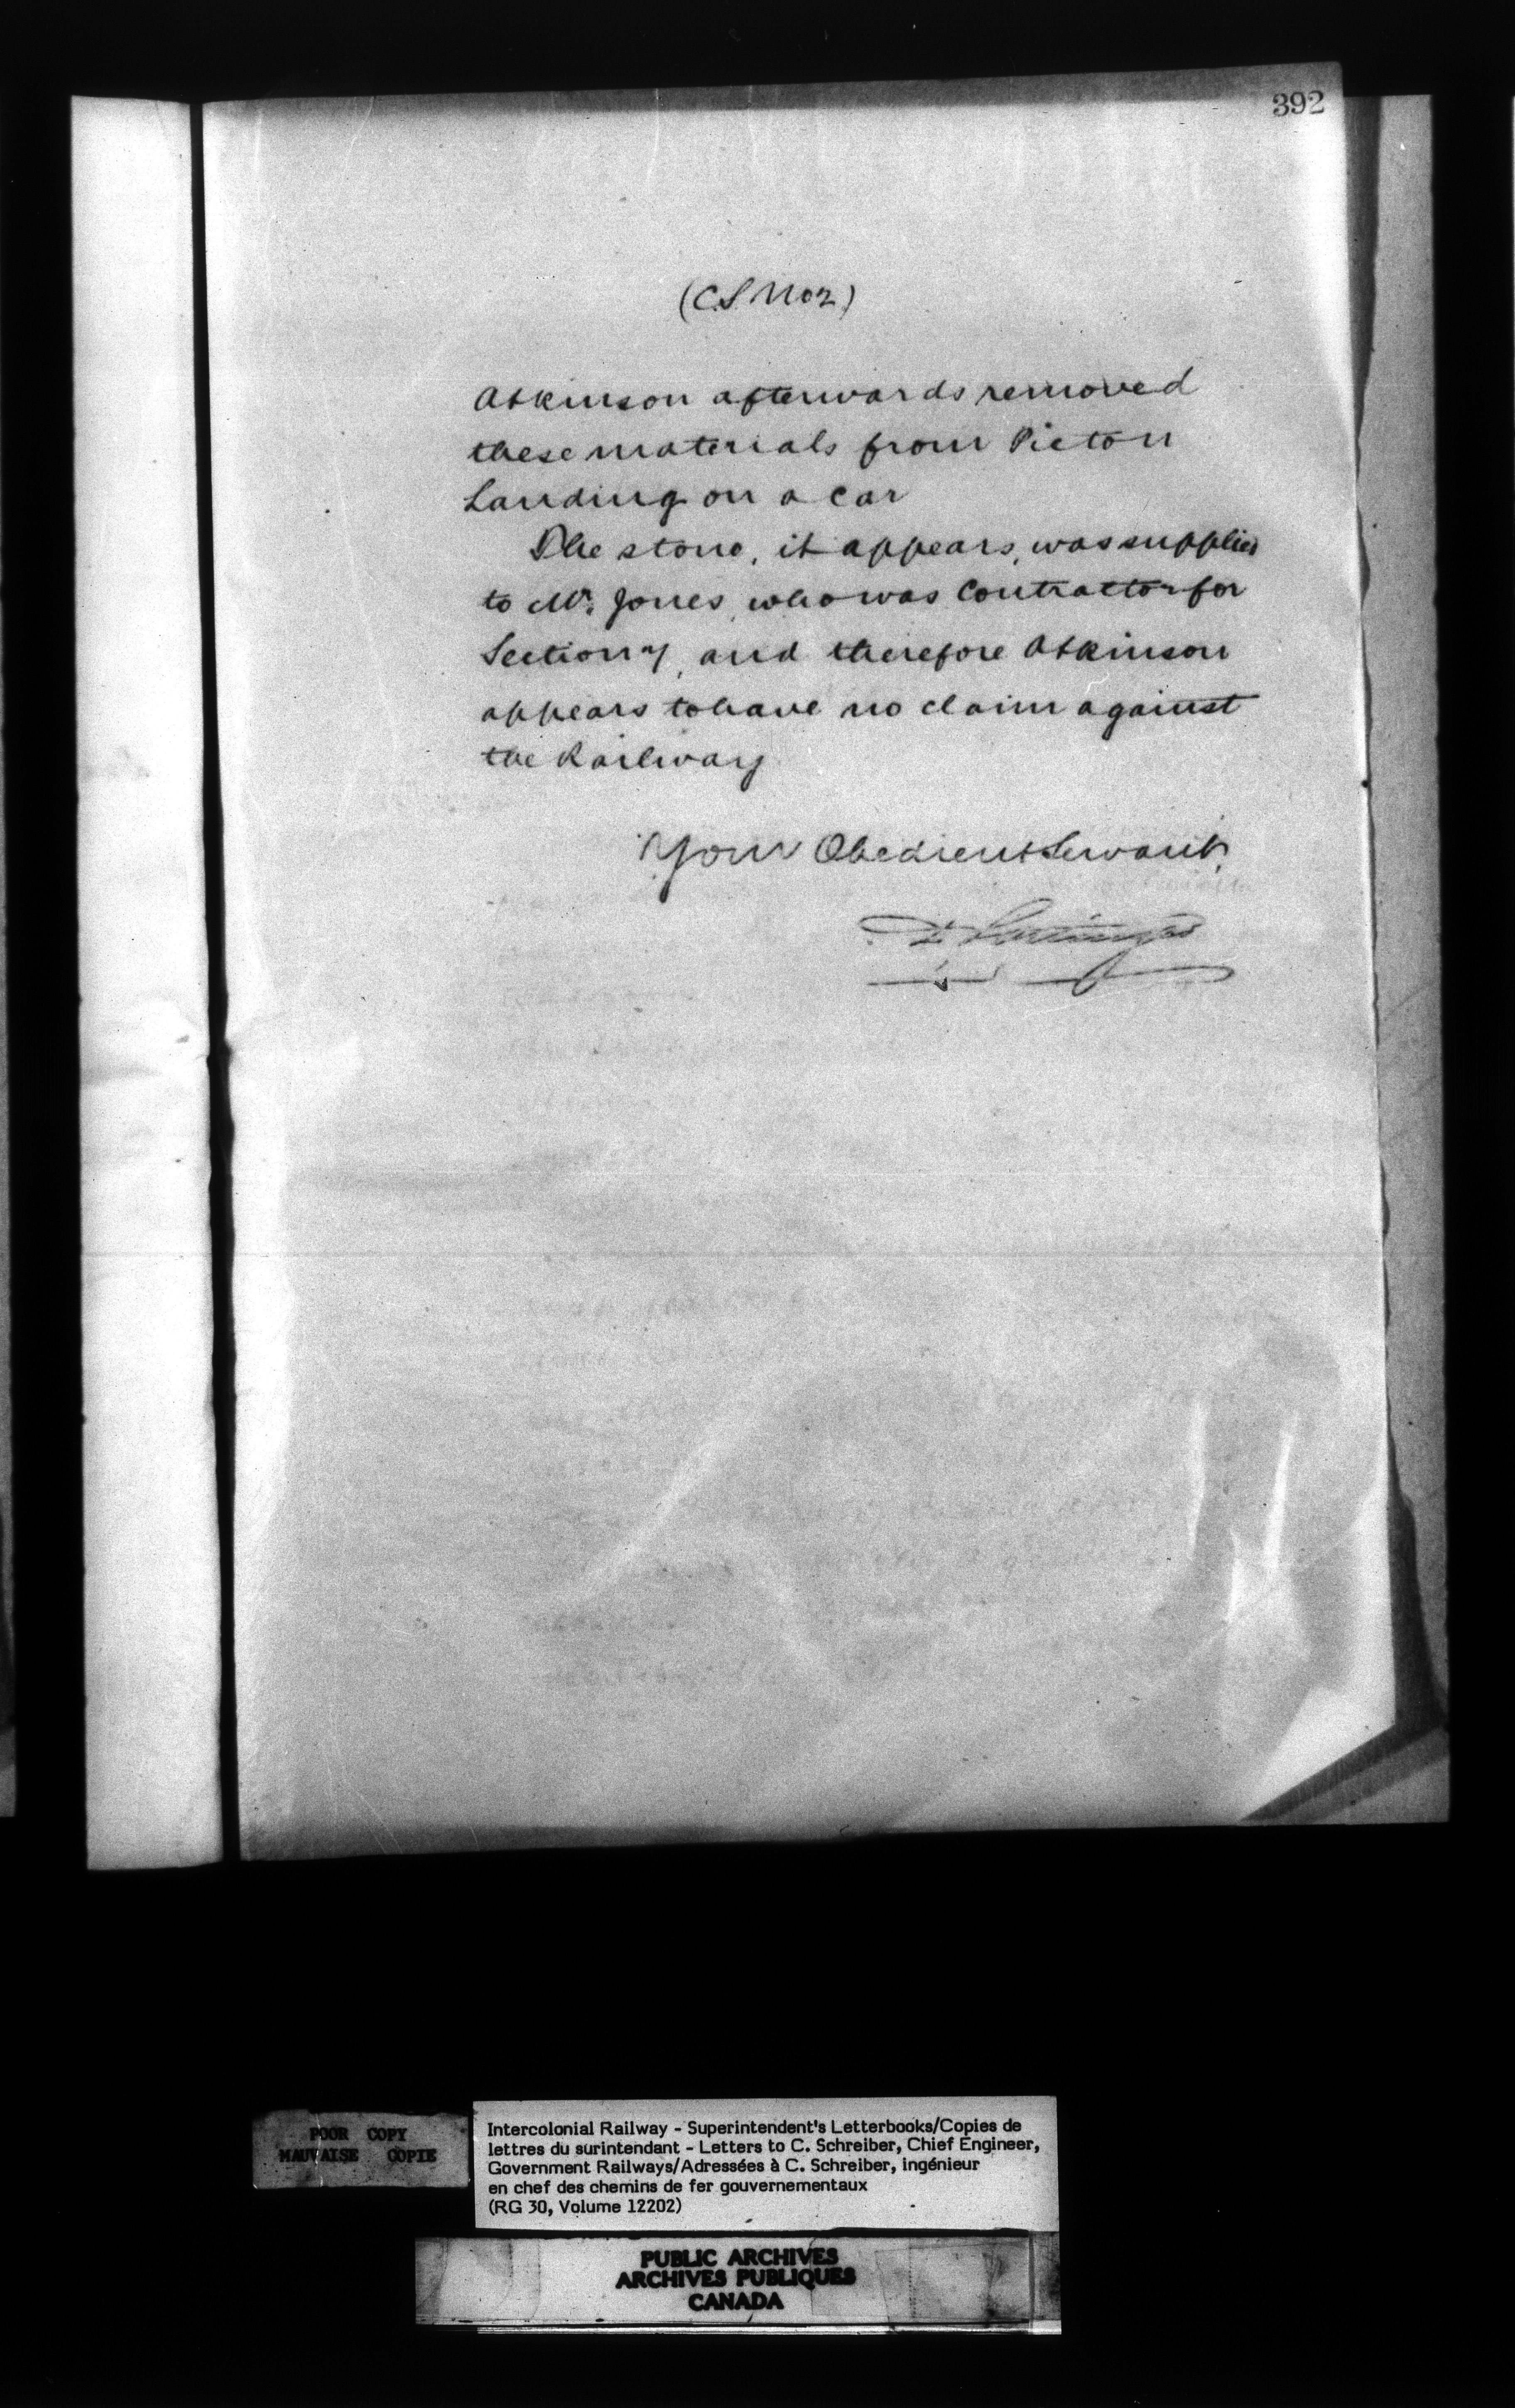 392
(C.S. No 2)
Atkinson afterwards removed
these materials from Pictou
Landing on a car
The stone, it appears, was supplied
to Mr. Jones, who was Contractor for
Section 7, and therefore Atkinson
appears to have no claim against
the Railway
Your Obedient Servant,
D. Pottinger
POOR COPY
MAUVAISE COPIE
Intercolonial Railway - Superintendent's Letterbooks/Copies de
lettres du surintendant - Letters to C. Schreiber, Chief Engineer,
Government Railways/Adressées à C. Schreiber, ingénieur
en chef des chemins de fer gouvernementaux
(RG 30, Volume 12202)
PUBLIC ARCHIVES
ARCHIVES PUBLIQUES
CANADA